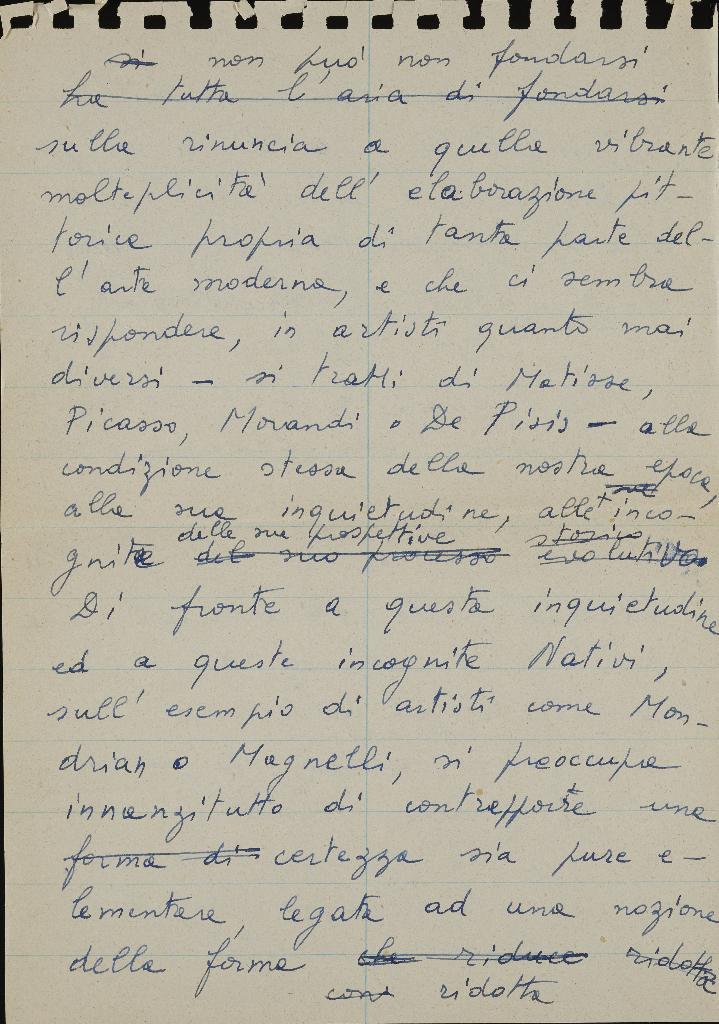 si non può non fondarsi
ha tutta l'aria di fondarsi
sulla rinuncia a quella vibrante
molteplicità dell'elaborazione pit-
torica propria di tanta parte del-
l'arte moderna, e che ci sembra
rispondere, in artisti quanto mai
diversi – si tratti di Matisse,
Picasso, Morandi o De Pisis – alla
condizione stessa della nostra epoca,
alla sua inquietudine, alle inco-
delle sue prospettive storico
gnite del suo processo evolutivo
Di fronte a questa inquietudine
ed a queste incognite Nativi,
sull'esempio di artisti come Mon-
drian o Magnelli, si preoccupa
innanzitutto di contrapporre una
forma di certezza sia pure e-
lementare, legata ad una nozione
della forma che riduce ridotta
così ridotta